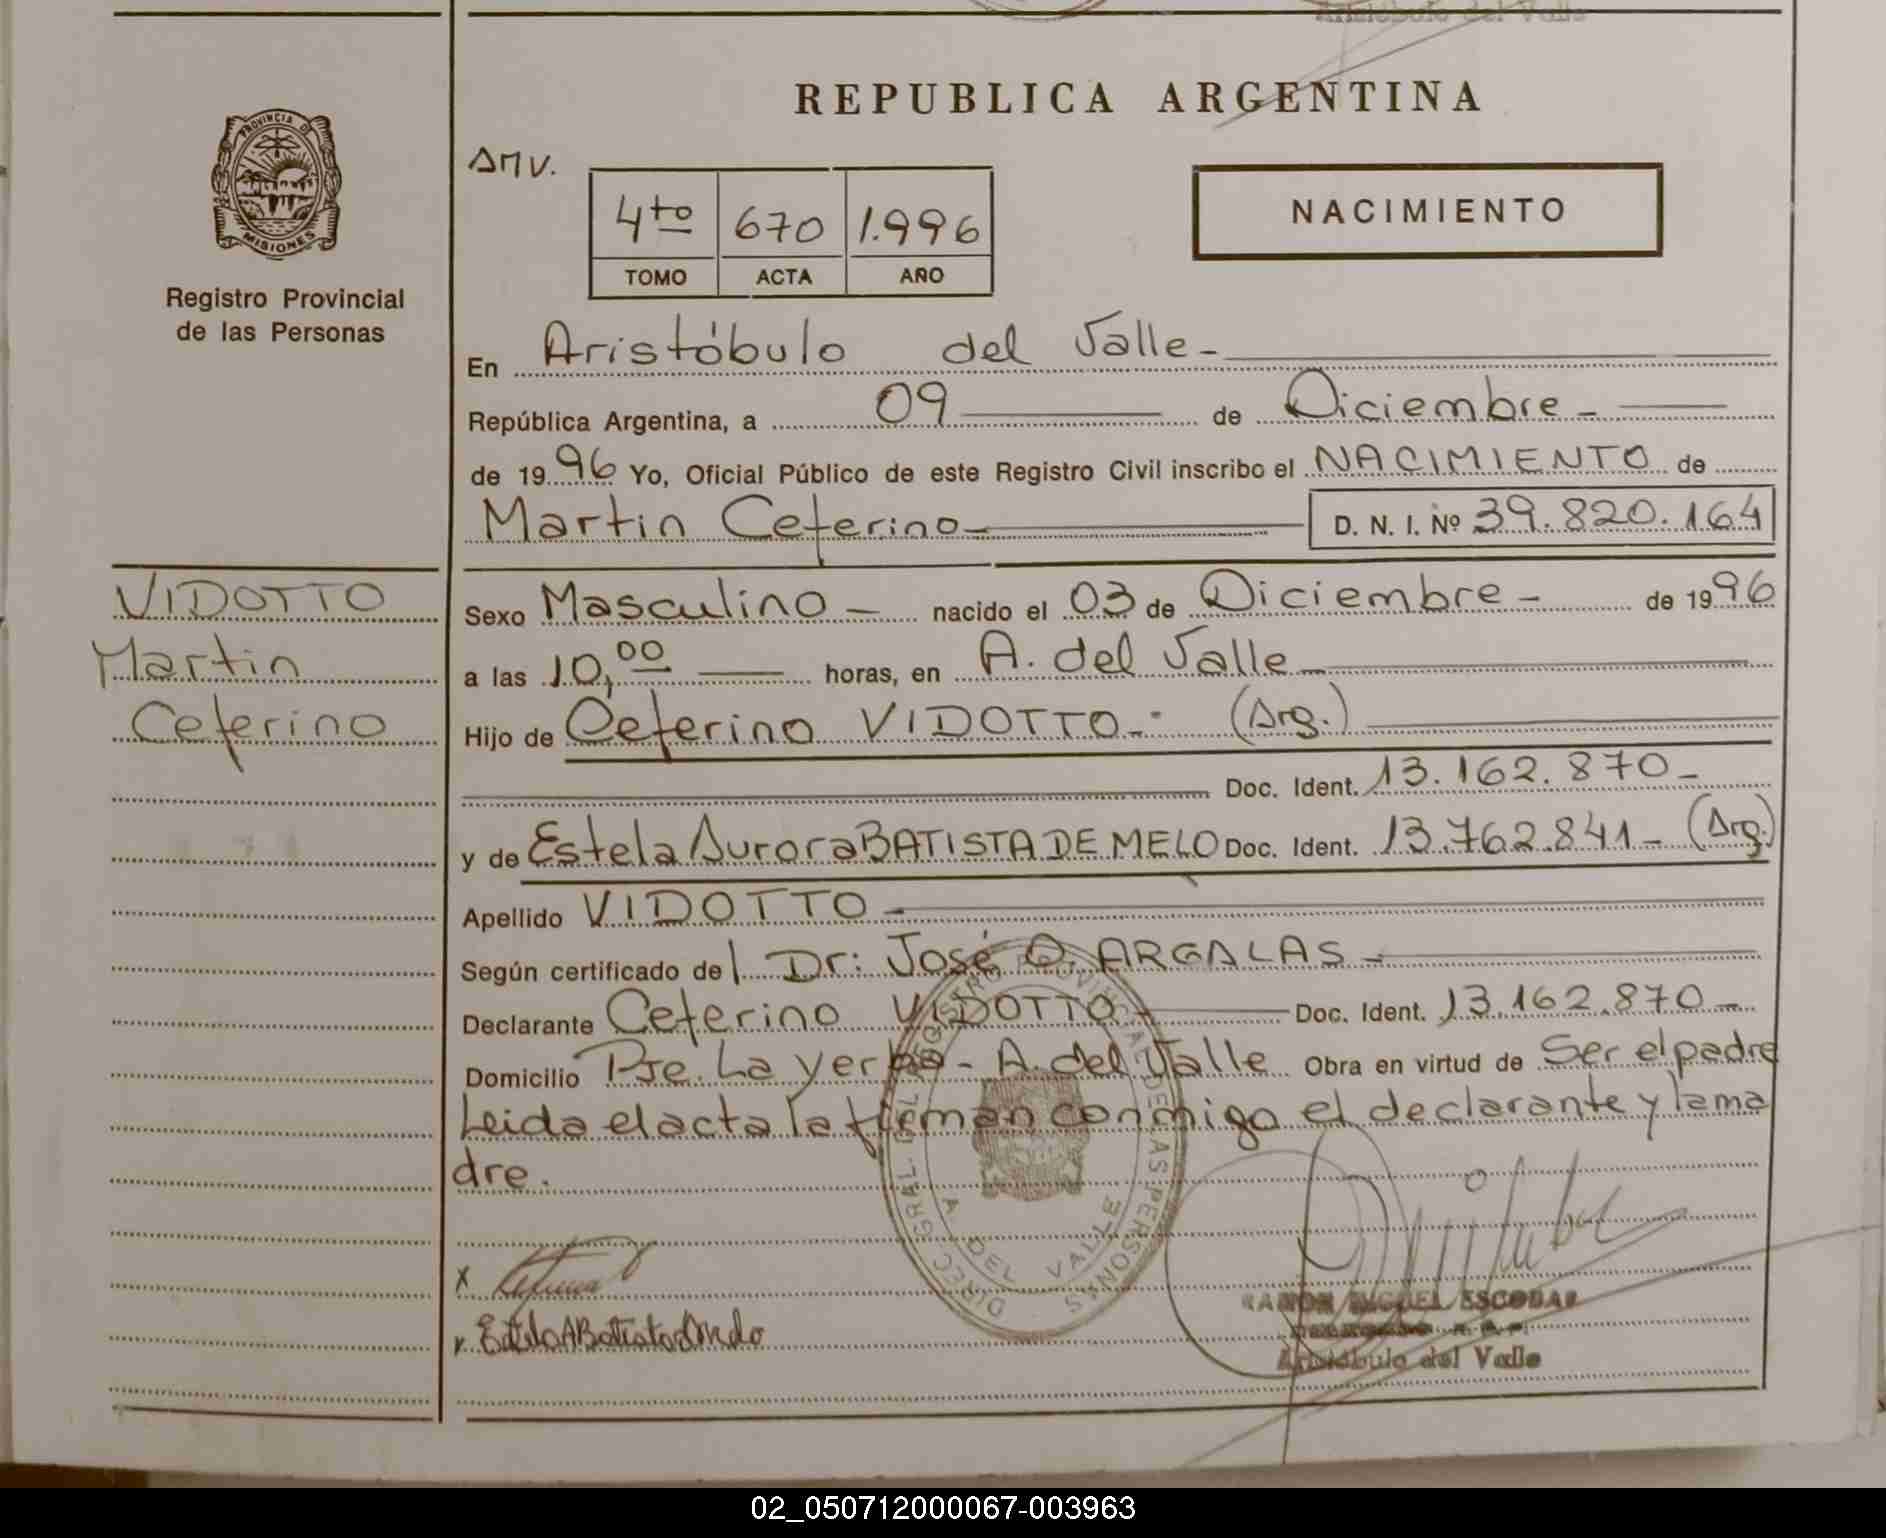 Aristóbulo del Valle
REPUBLICA ARGENTINA
PROVINCIA DE
MISIONES
Registro Provincial
de las Personas
AMV.
4to 670 1.996
TOMO ACTA AÑO
NACIMIENTO
En Aristóbulo del Valle-
República Argentina, a 09 de Diciembre-
de 1996 Yo, Oficial Público de este Registro Civil inscribo el NACIMIENTO de
Martin Ceferino- D. N. I. Nº 39.820.164
VIDOTTO
Martin
Ceferino
Sexo Masculino- nacido el 03 de Diciembre- de 1996
a las 10,00 horas, en A. del Valle-
Hijo de Ceferino VIDOTTO.- (Arg.)
Doc. Ident. 13.162.870-
y de Estela Aurora BATISTA DE MELO Doc. Ident. 13.762.841- (Arg.)
Apellido VIDOTTO-
Según certificado del Dr: José O. ARGALAS-
Declarante Ceferino VIDOTTO- Doc. Ident. 13.162.870-
Domicilio Pje. La yerba- A. del Valle Obra en virtud de Ser el padre
Leida el acta la firman conmigo el declarante y la ma
dre.
DIREC. GRAL. DEL REGISTRO PROVINCIAL DE LAS PERSONAS
A. DEL VALLE
x
Estela A Batista de Melo
RAMON MIGUEL ESCOBAR
Aristóbulo del Valle
02_050712000067-003963